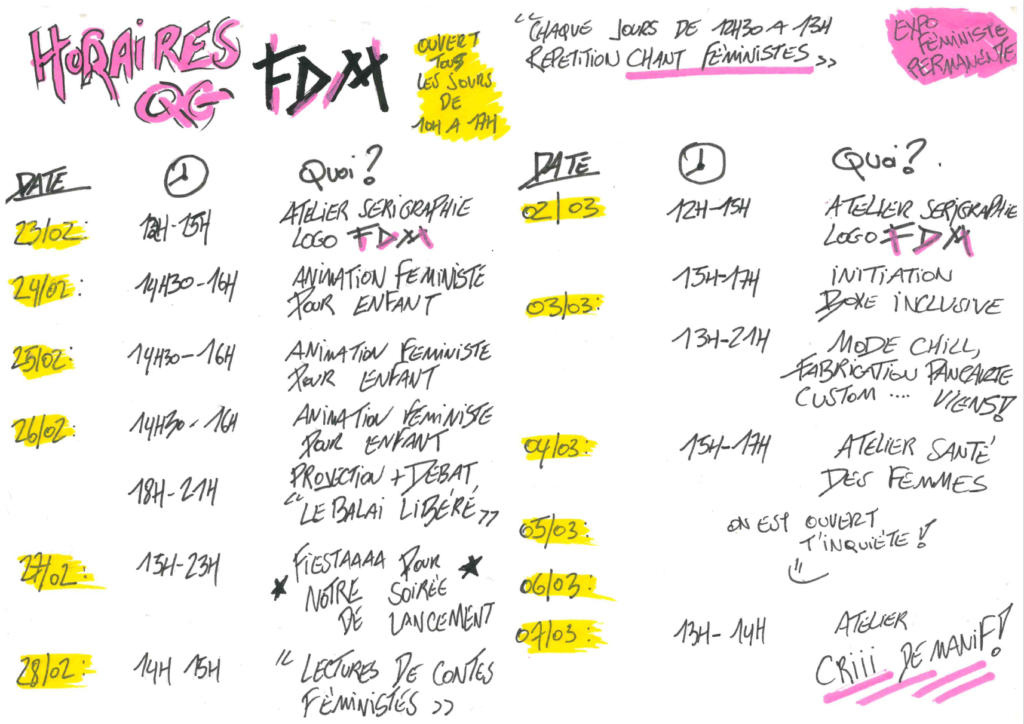 HORAIRES
QG
FDM
OUVERT
TOUS
LES JOURS
DE
10H A 17H
"CHAQUE JOURS DE 12H30 A 13H
REPETITION CHANT FÉMINISTES »
EXPO
FÉMINISTE
PERMANENTE
DATE Quoi?
23/02: 12H-15H ATELIER SERIGRAPHIE
LOGO FDM
24/02: 14H30-16H ANIMATION FEMINISTE
POUR ENFANT
25/02: 14H30-16H ANIMATION FEMINISTE
POUR ENFANT
26/02: 14H30-16H ANIMATION FÉMINISTE
POUR ENFANT
18H-21H PROJECTION + DEBAT
"LE BALAI LIBÉRÉ»
27/02: 15H-23H FIESTAAAA POUR
NOTRE SOIRÉE
DE LANCEMENT
28/02: 14H 15H "LECTURES DE CONTES
FÉMINISTES »
DATE Quoi?.
02/03 12H-15H ATELIER SERIGRAPHIE
LOGO FDM
03/03: 15H-17H INITIATION
BOXE INCLUSIVE
13H-21H MODE CHILL,
FABRICATION PANCARTE
CUSTOM .... VIENS!
04/03: 15H-17H ATELIER SANTÉ
DES FEMMES
05/03: ON EST OUVERT
T'INQUIÉTE!
06/03:
07/03: 13H-14H ATELIER
CRIII DE MANIF!